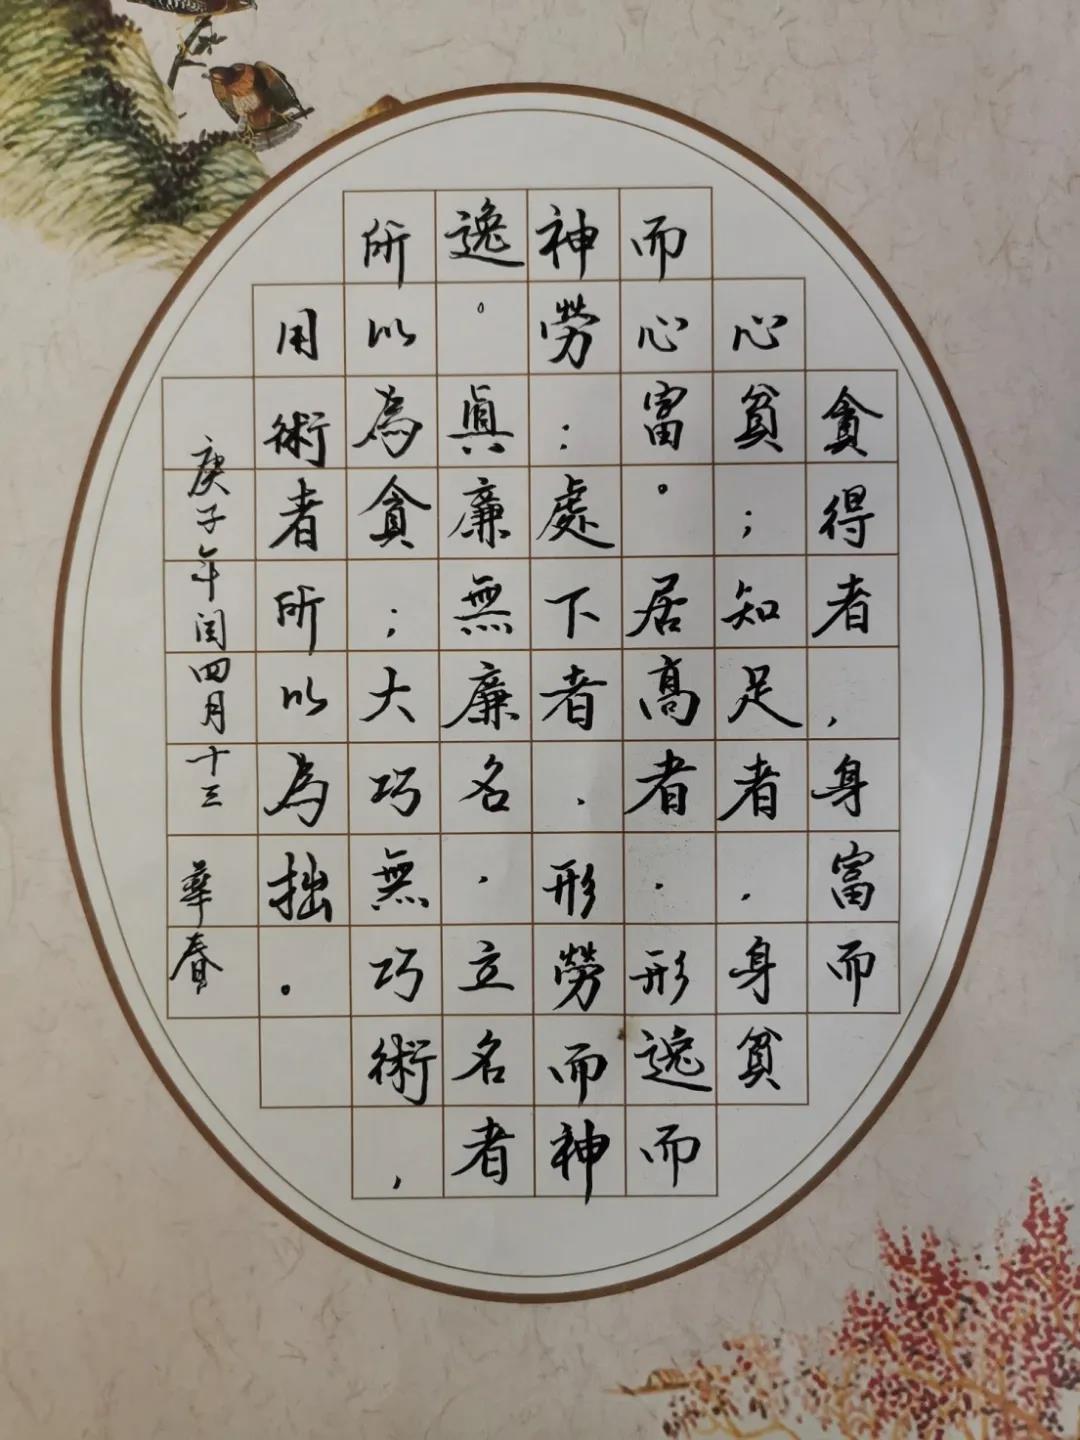 貪得者，身富而
心貧；知足者，身貧
而心富。居髙者，形逸而
神勞：處下者，形勞而神
逸。眞廉無廉名，立名者
所以為貪；大巧無巧術，
用術者所以為拙。
庚子年闰四月十三 華春